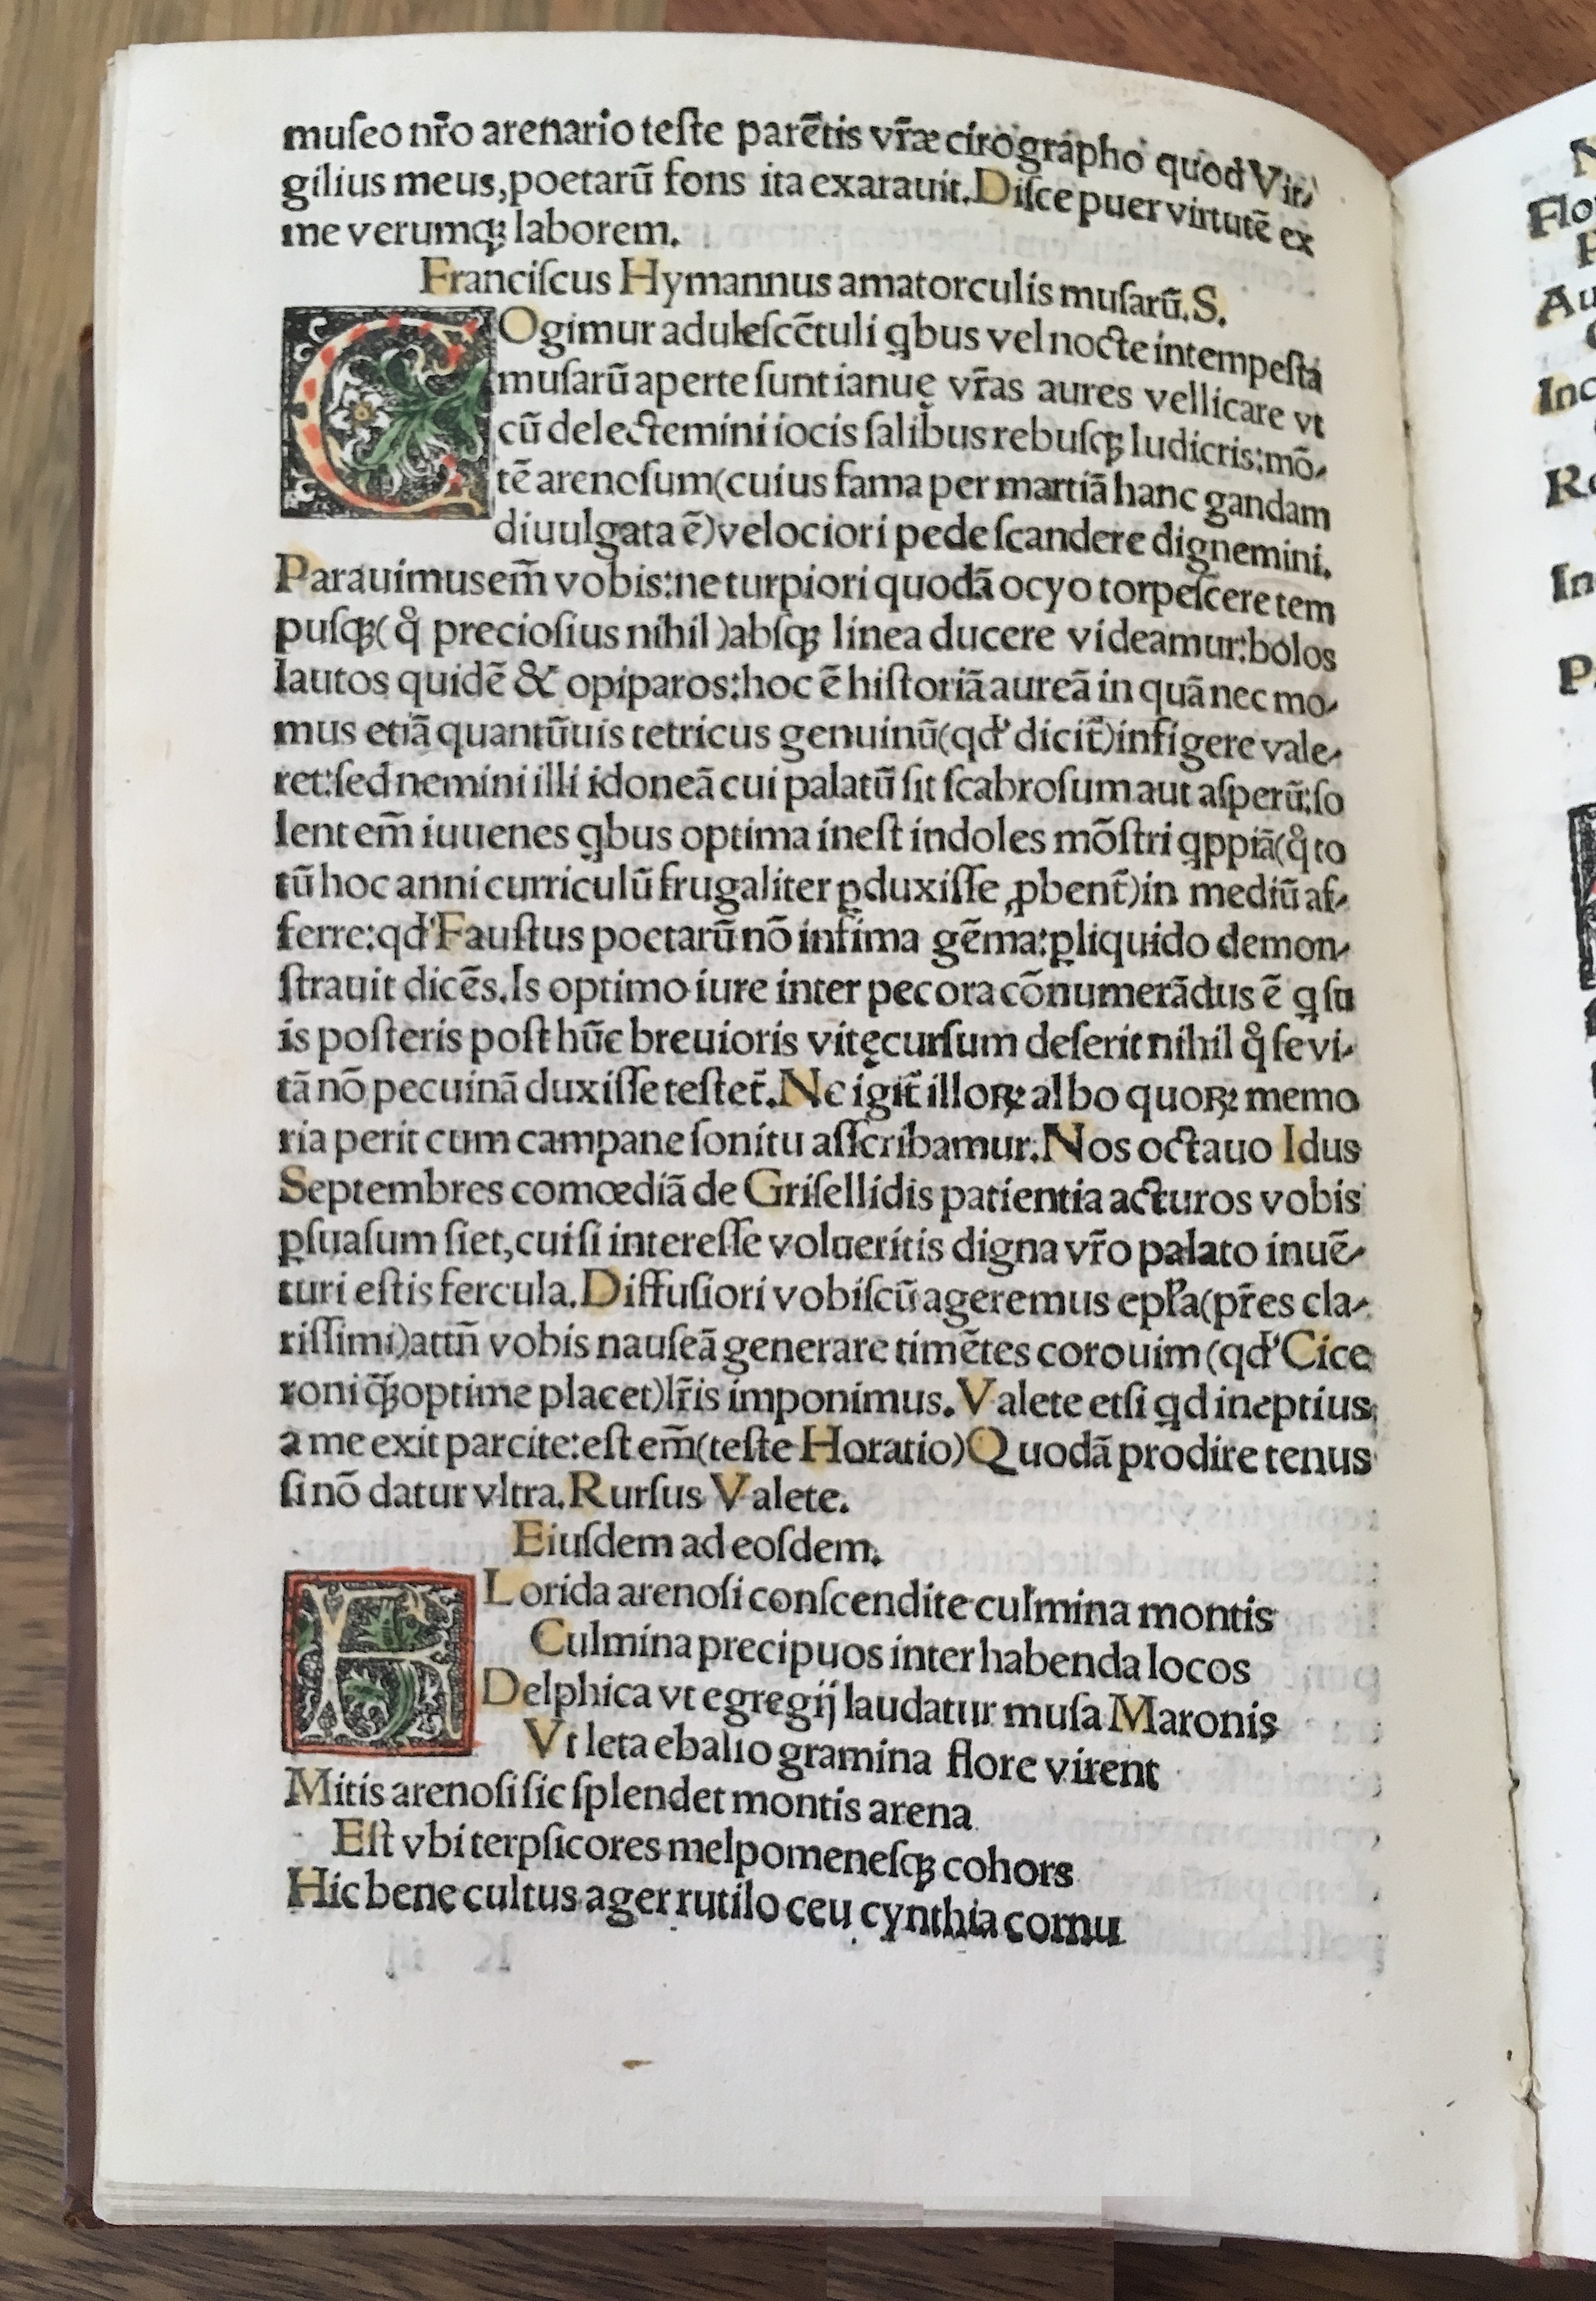 muſeo nr̄o arenario teſte parētis vr̄æ cirographo quod Vir⸗
gilius meus,poetarū fons ita exarauit.Diſce puer virtutē ex
me verumqꝫ laborem.
Franciſcus Hymannus amatorculis muſarū.S.
COgimur aduleſcētuli qbus vel nocte intempeſta
muſarū aperte ſunt ianuę vr̄as aures vellicare vt
cū delectemini iocis ſalibus rebuſqꝫ ludicris:mō⸗
tē arenoſum(cuius fama per martiā hanc gandam
diuulgata ē)velociori pede ſcandere dignemini.
Parauimus em̄ vobis:ne turpiori quodā ocyo torpeſcere tem
puſqꝫ(qͦ precioſius nihil)abſqꝫ linea ducere videamur:bolos
lautos quidē & opiparos:hoc ē hiſtoriā aureā in quā nec mo⸗
mus etiā quantūuis tetricus genuinū(qd' dicit̄)infigere vale⸗
ret:ſed nemini illi idoneā cui palatū ſit ſcabroſum aut aſperū:ſo
lent em̄ iuuenes qbus optima ineſt indoles mōſtri qppiā(qͦ to
tū hoc anni curriculū frugaliter ꝑduxiſſe ꝓbent̄)in mediū af⸗
ferre:qd' Fauſtus poetarū nō infima gēma:ꝑliquido demon⸗
ſtrauit dicēs.Is optimo iure inter pecora cōnumerādus ē q ſu
is poſteris poſt hūc breuioris vitę curſum deſerit nihil qͦ ſe vi⸗
tā nō pecuinā duxiſſe teſtet̄.Ne igit̄ illoꝝ albo quoꝝ memo
ria perit cum campane ſonitu aſſcribamur:Nos octauo Idus
Septembres comœdiā de Griſellidis patientia acturos vobis
ꝑſuaſum ſiet,cui ſi intereſſe volueritis digna vr̄o palato inuē⸗
turi eſtis fercula.Diffuſiori vobiſcū ageremus epl̄a(pr̄es cla⸗
riſſimi)attn̄ vobis nauſeā generare timētes corouim(qd' Cice
roni qꝫ̄ optime placet)lr̄is imponimus.Valete etſi qd ineptius
a me exit parcite:eſt em̄(teſte Horatio)Quodā prodire tenus
ſi nō datur vltra.Rurſus Valete.
Eiuſdem ad eoſdem.
FLorida arenoſi conſcendite culmina montis
Culmina precipuos inter habenda locos
Delphica vt egregij laudatur muſa Maronis
Vt leta ebalio gramina flore virent
Mitis arenoſi ſic ſplendet montis arena
Eſt vbi terpſicores melpomeneſqꝫ cohors
Hic bene cultus ager rutilo ceu cynthia cornu